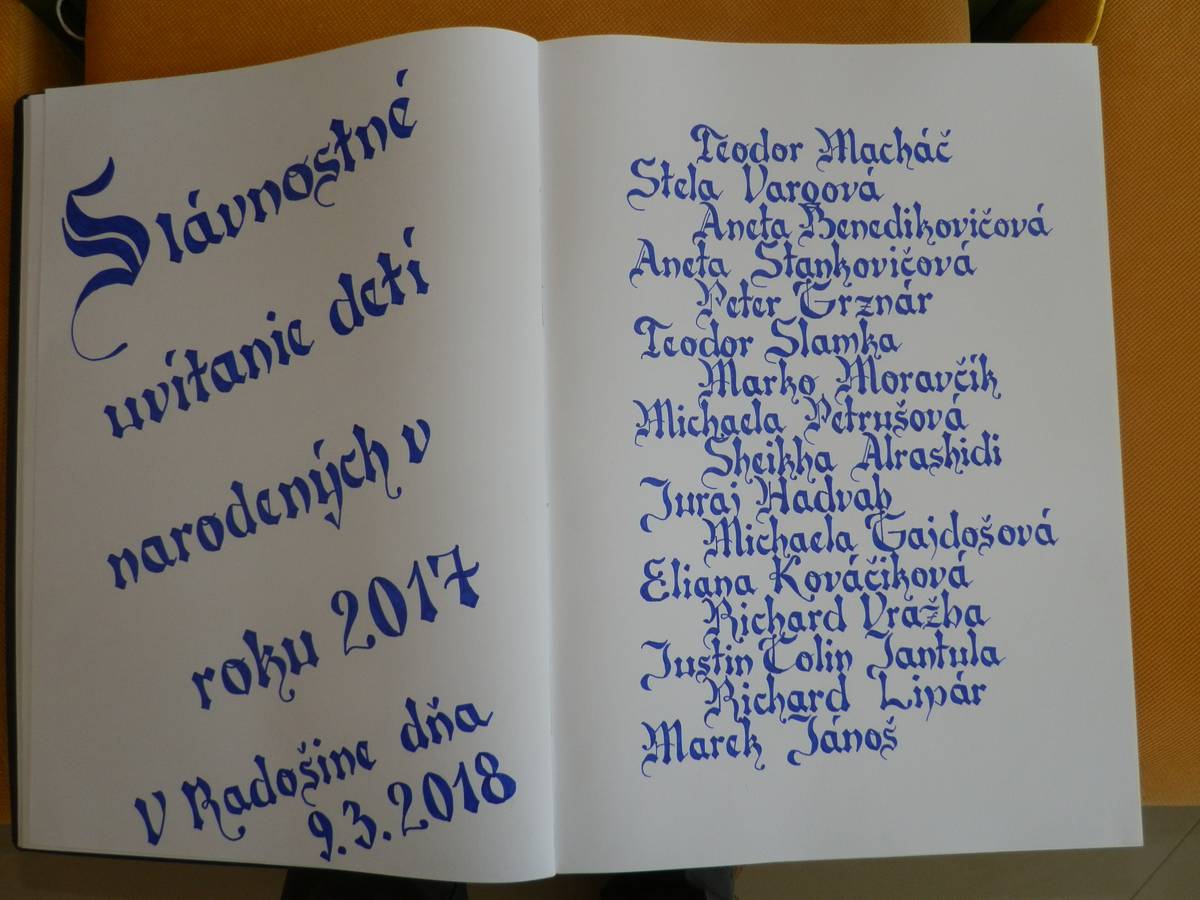 Slávnostné
uvítanie detí
narodených v
roku 2017
V Radošine dňa
9.3.2018
Teodor Macháč
Stela Vargová
Aneta Benedikovičová
Aneta Stankovičová
Peter Grznár
Teodor Slamka
Marko Moravčík
Michaela Petrušová
Sheikha Alrashidi
Juraj Hadvab
Michaela Gajdošová
Eliana Kováčiková
Richard Vražba
Justin Colin Jantula
Richard Lipár
Marek Jánoš